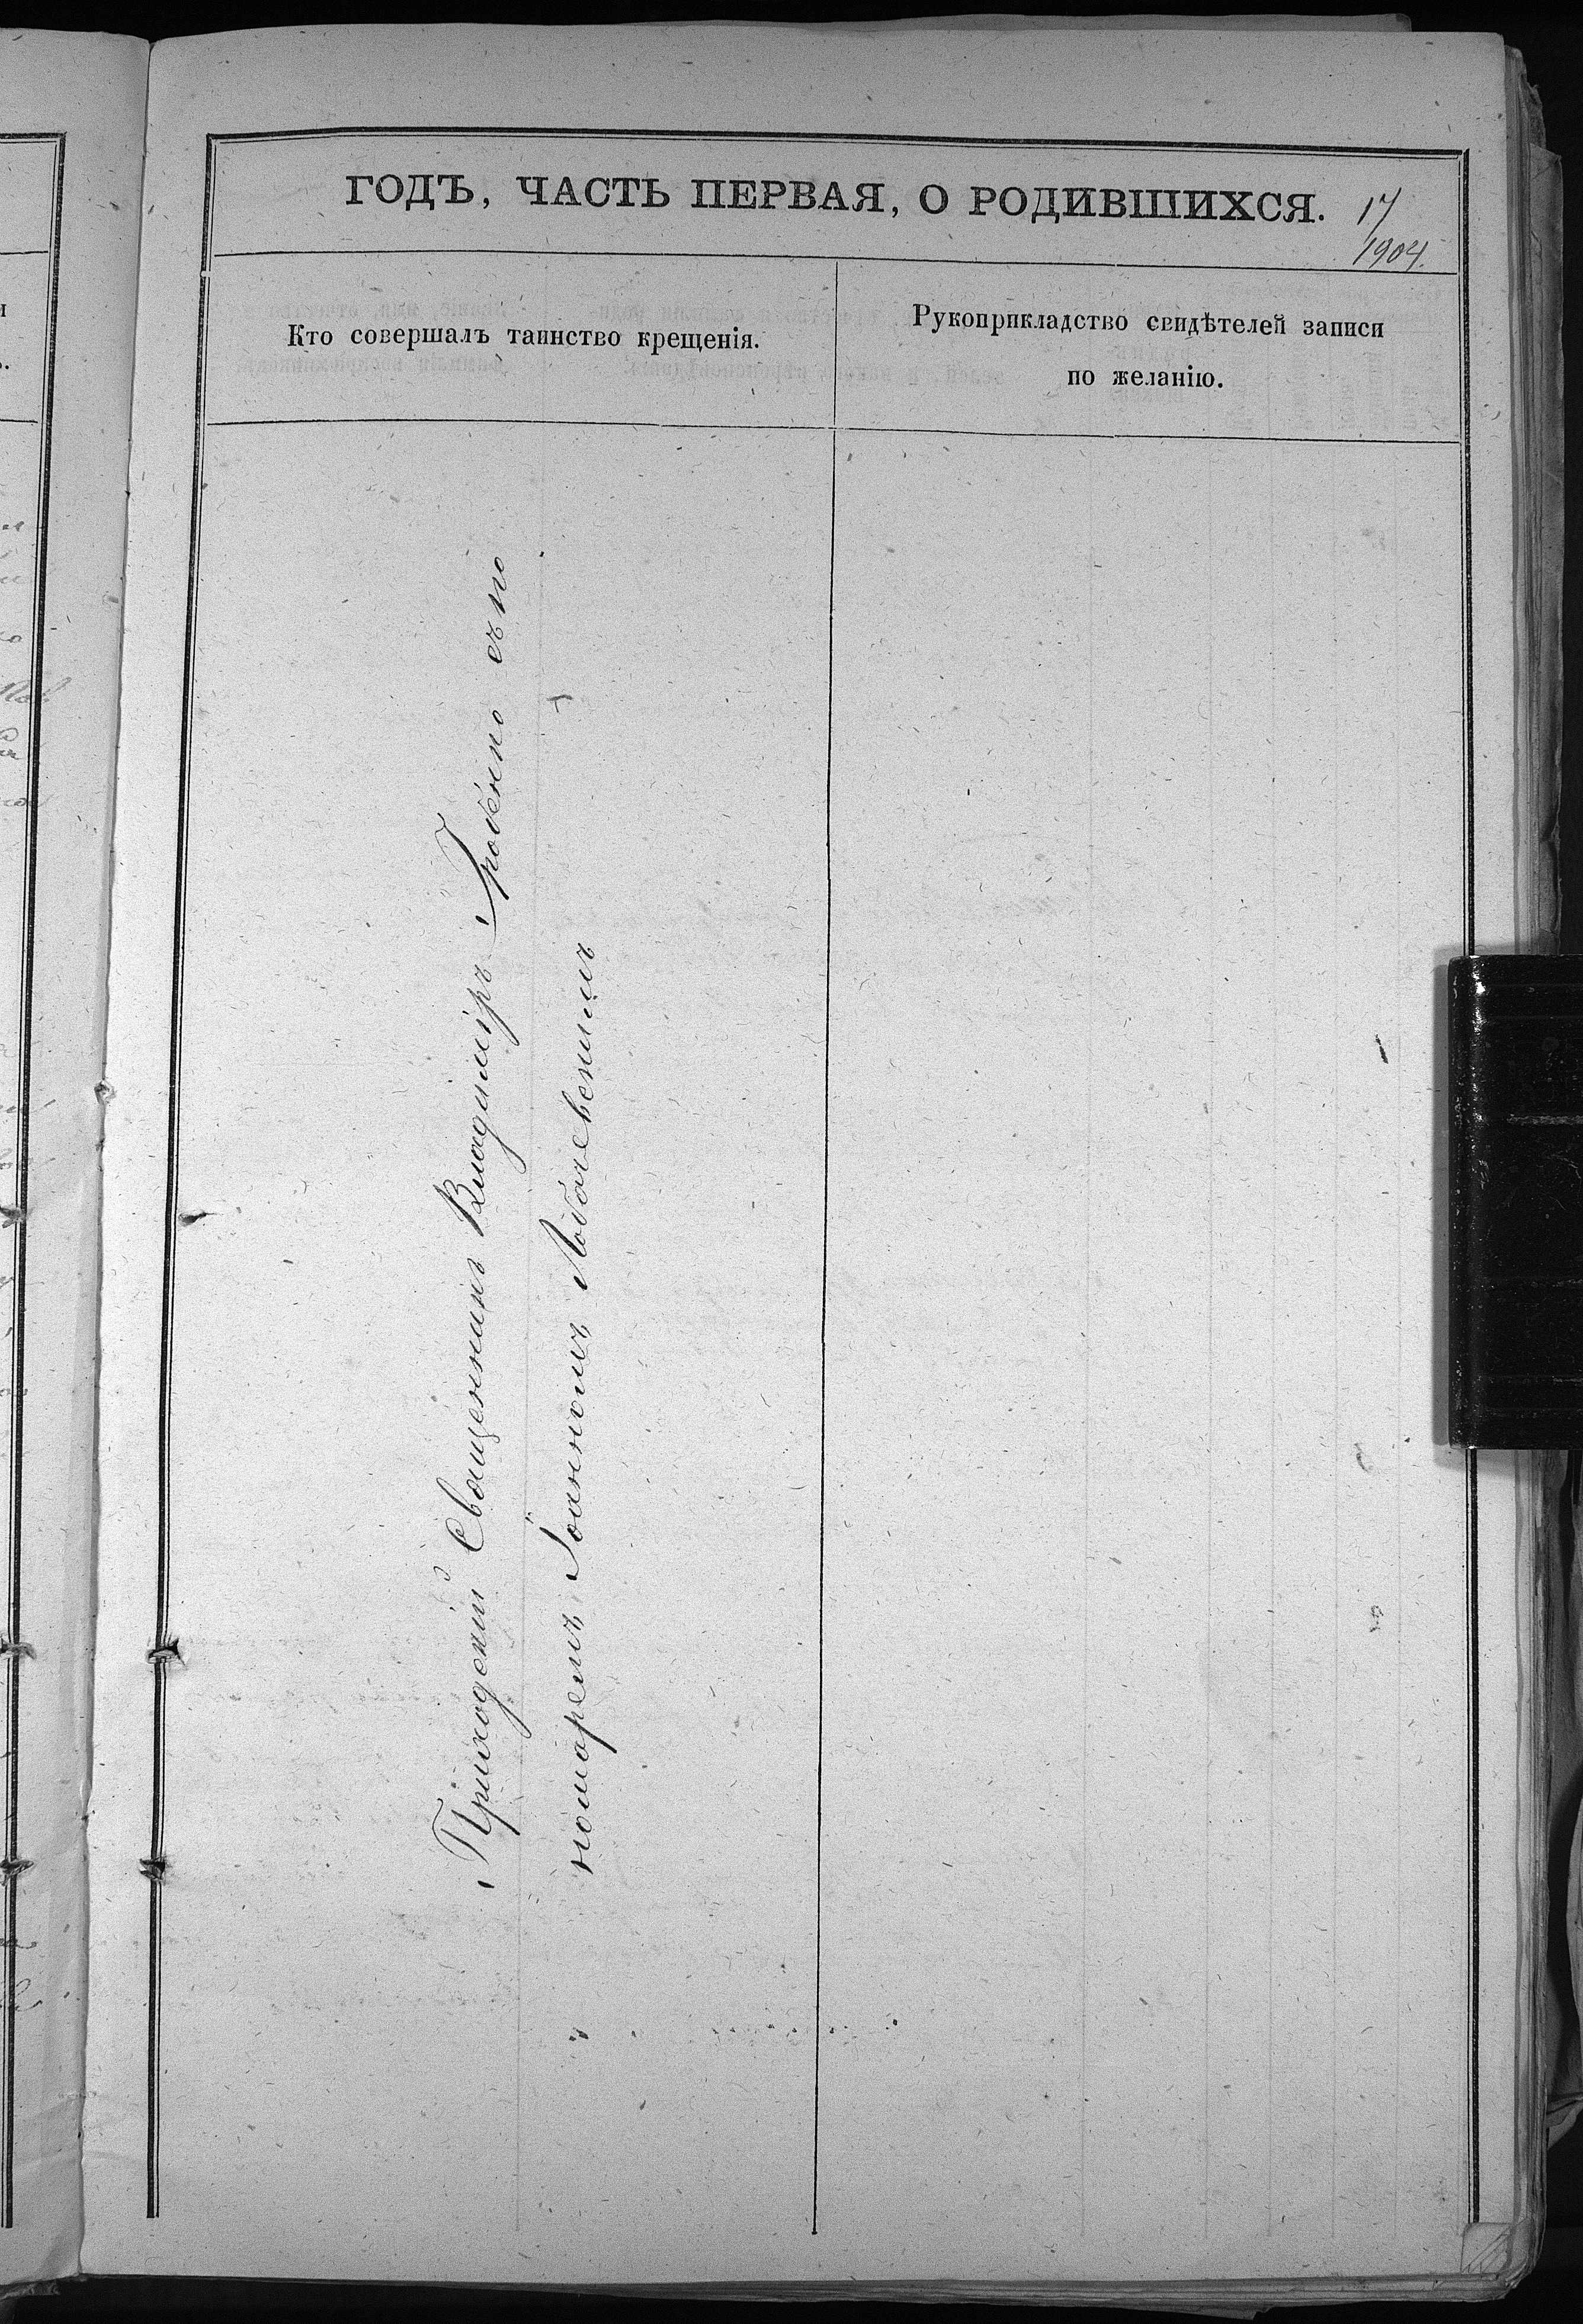 ГОДЪ, ЧАСТЬ ПЕРВАЯ, О РОДИВШИХСЯ.
17
1904.
Кто совершалъ таинство крещенія.
Рукоприкладство свидѣтелей записи
по желанію.
Приходскій Священникъ Владиміръ съ по
номаремъ Іоанномъ Лобачевскимъ